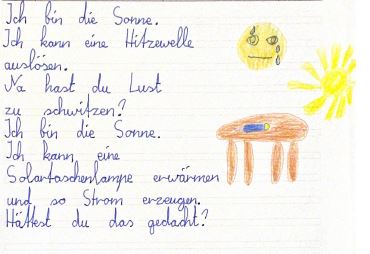 Ich bin die Sonne.
Ich kann eine Hitzewelle
auslösen.
Na hast du Lust
zu schwitzen?
Ich bin die Sonne.
Ich kann eine
Solartaschenlampe erwärmen
und so Strom erzeugen.
Hättest du das gedacht?